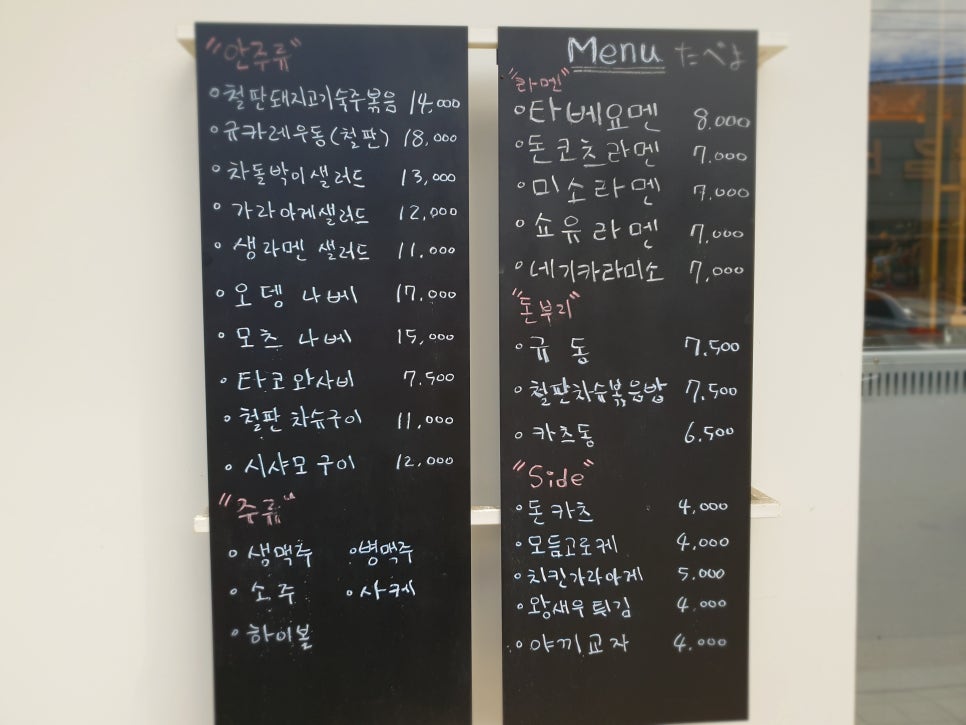 "안주류"
철판돼지고기숙주볶음 14,000
규카레우동(철판) 18,000
차돌박이샐러드 13,000
가라아게샐러드 12,000
생라멘 샐러드 11,000
오뎅 나베 17,000
모츠 나베 15,000
타코와사비 7.500
철판 차슈구이 11,000
시샤모 구이 12,000
"주류"
생맥주 병맥주
소주 사케
하이볼
Menu たべよ
"라멘"
타베요멘 8.000
돈코츠라멘 7.000
미소라멘 7,000
쇼유라멘 7,000
네기카라미소 7,000
"돈부리"
규동 7.500
철판차슈볶음밥 7.500
카츠동 6.500
"Side"
돈카츠 4,000
모듬고로케 4,000
치킨가라아게 5.000
왕새우튀김 4.000
야끼교자 4.000